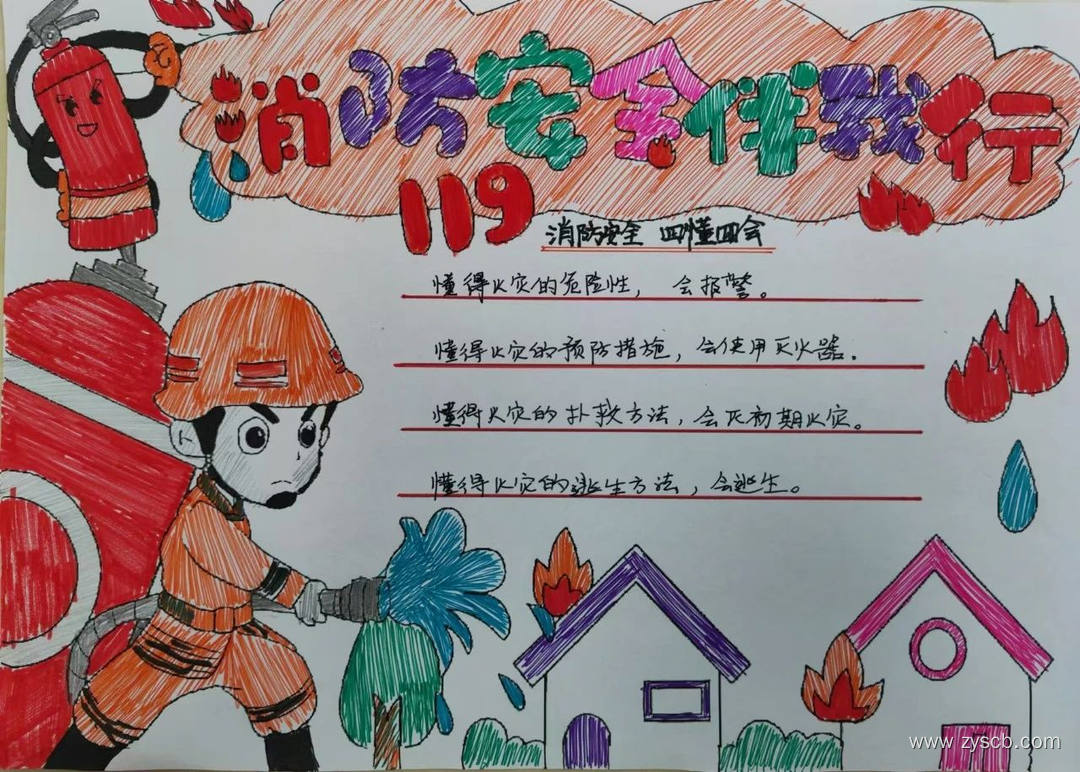 消防安全伴我行
119
消防安全 四懂四会
懂得火灾的危险性， 会报警。
懂得火灾的预防措施，会使用灭火器.
懂得火灾的扑救方法，会灭初期火灾。
懂得火灾的逃生方法，会逃生。
www.zyscb.com